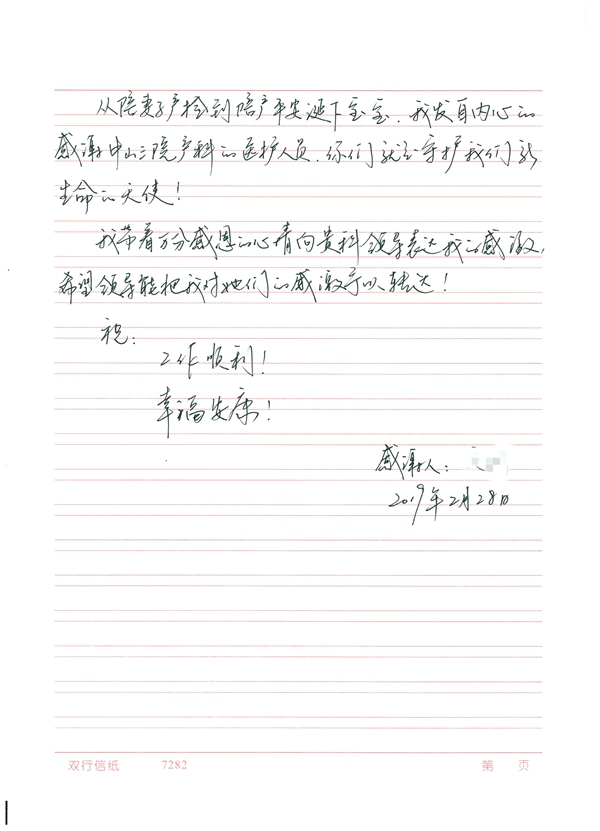 从陪妻子产检到陪产平安诞下宝宝，我发自内心的
感谢中山三院产科的医护人员，你们就是守护我们新
生命的天使！
我带着万分感恩的心情向贵科领导表达我的感激，
希望领导能把我对她们的感激予以转达！
祝：
工作顺利！
幸福安康！
感谢人：
2019年2月28日
双行信纸 7282 第 页